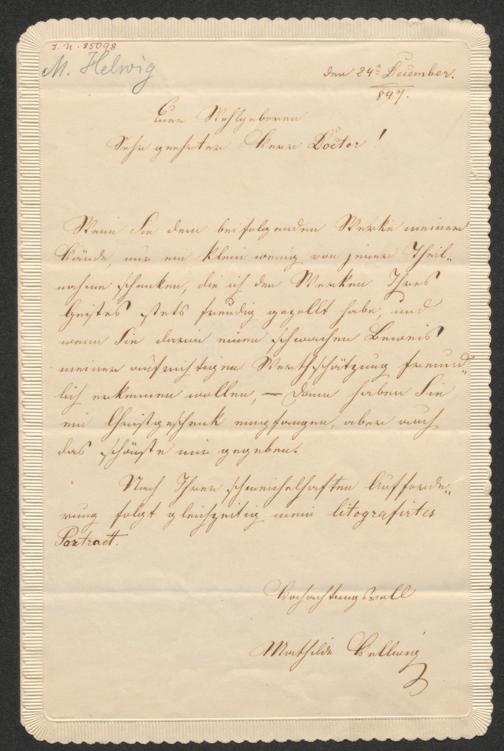 J. N. 85098
M. Helwig
den 24t December.
847.
Euer Wohlgeboren
Sehr geehrter Herr Doctor!
Wenn Sie dem beifolgenden Werke meiner
Hände, nur ein klein wenig von jener Theil-
nahme schenken, die ich den Werken Ihres
Geistes stets freudig gezollt habe, und
wenn Sie darin einen schwachen Beweis
meiner aufrichtigen Werthschätzung freund-
lich erkennen wollen, — dann haben Sie
ein Christgeschenk empfangen, aber auch
das schönste mir gegeben.
Nach Ihrer schmeichelhaften Aufforde-
rung folgt gleichzeitig mein litografirtes
Portrait.
Hochachtungsvoll
Mathilde Hellwig